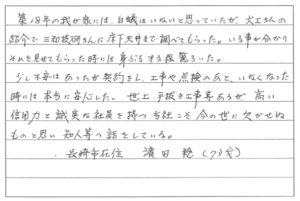 築18年の我が家には、白蟻はいないと思っていたが、大工さんの
紹介で三和技研さんに床下天井まで調べてもらった。いる事が分かり
それを見せてもらった時には身ぶるいする程驚ろいた。
少し不安はあったが契約をし、工事や点検のあと、いなくなった
時には本当に安心した。世上手抜き工事等あるが、高い
信用力と誠実な社員を持つ当社こそ今の世に欠かせぬ
ものと思い知人等へ話をしている。
長崎市在住 濵田 稔(73才)